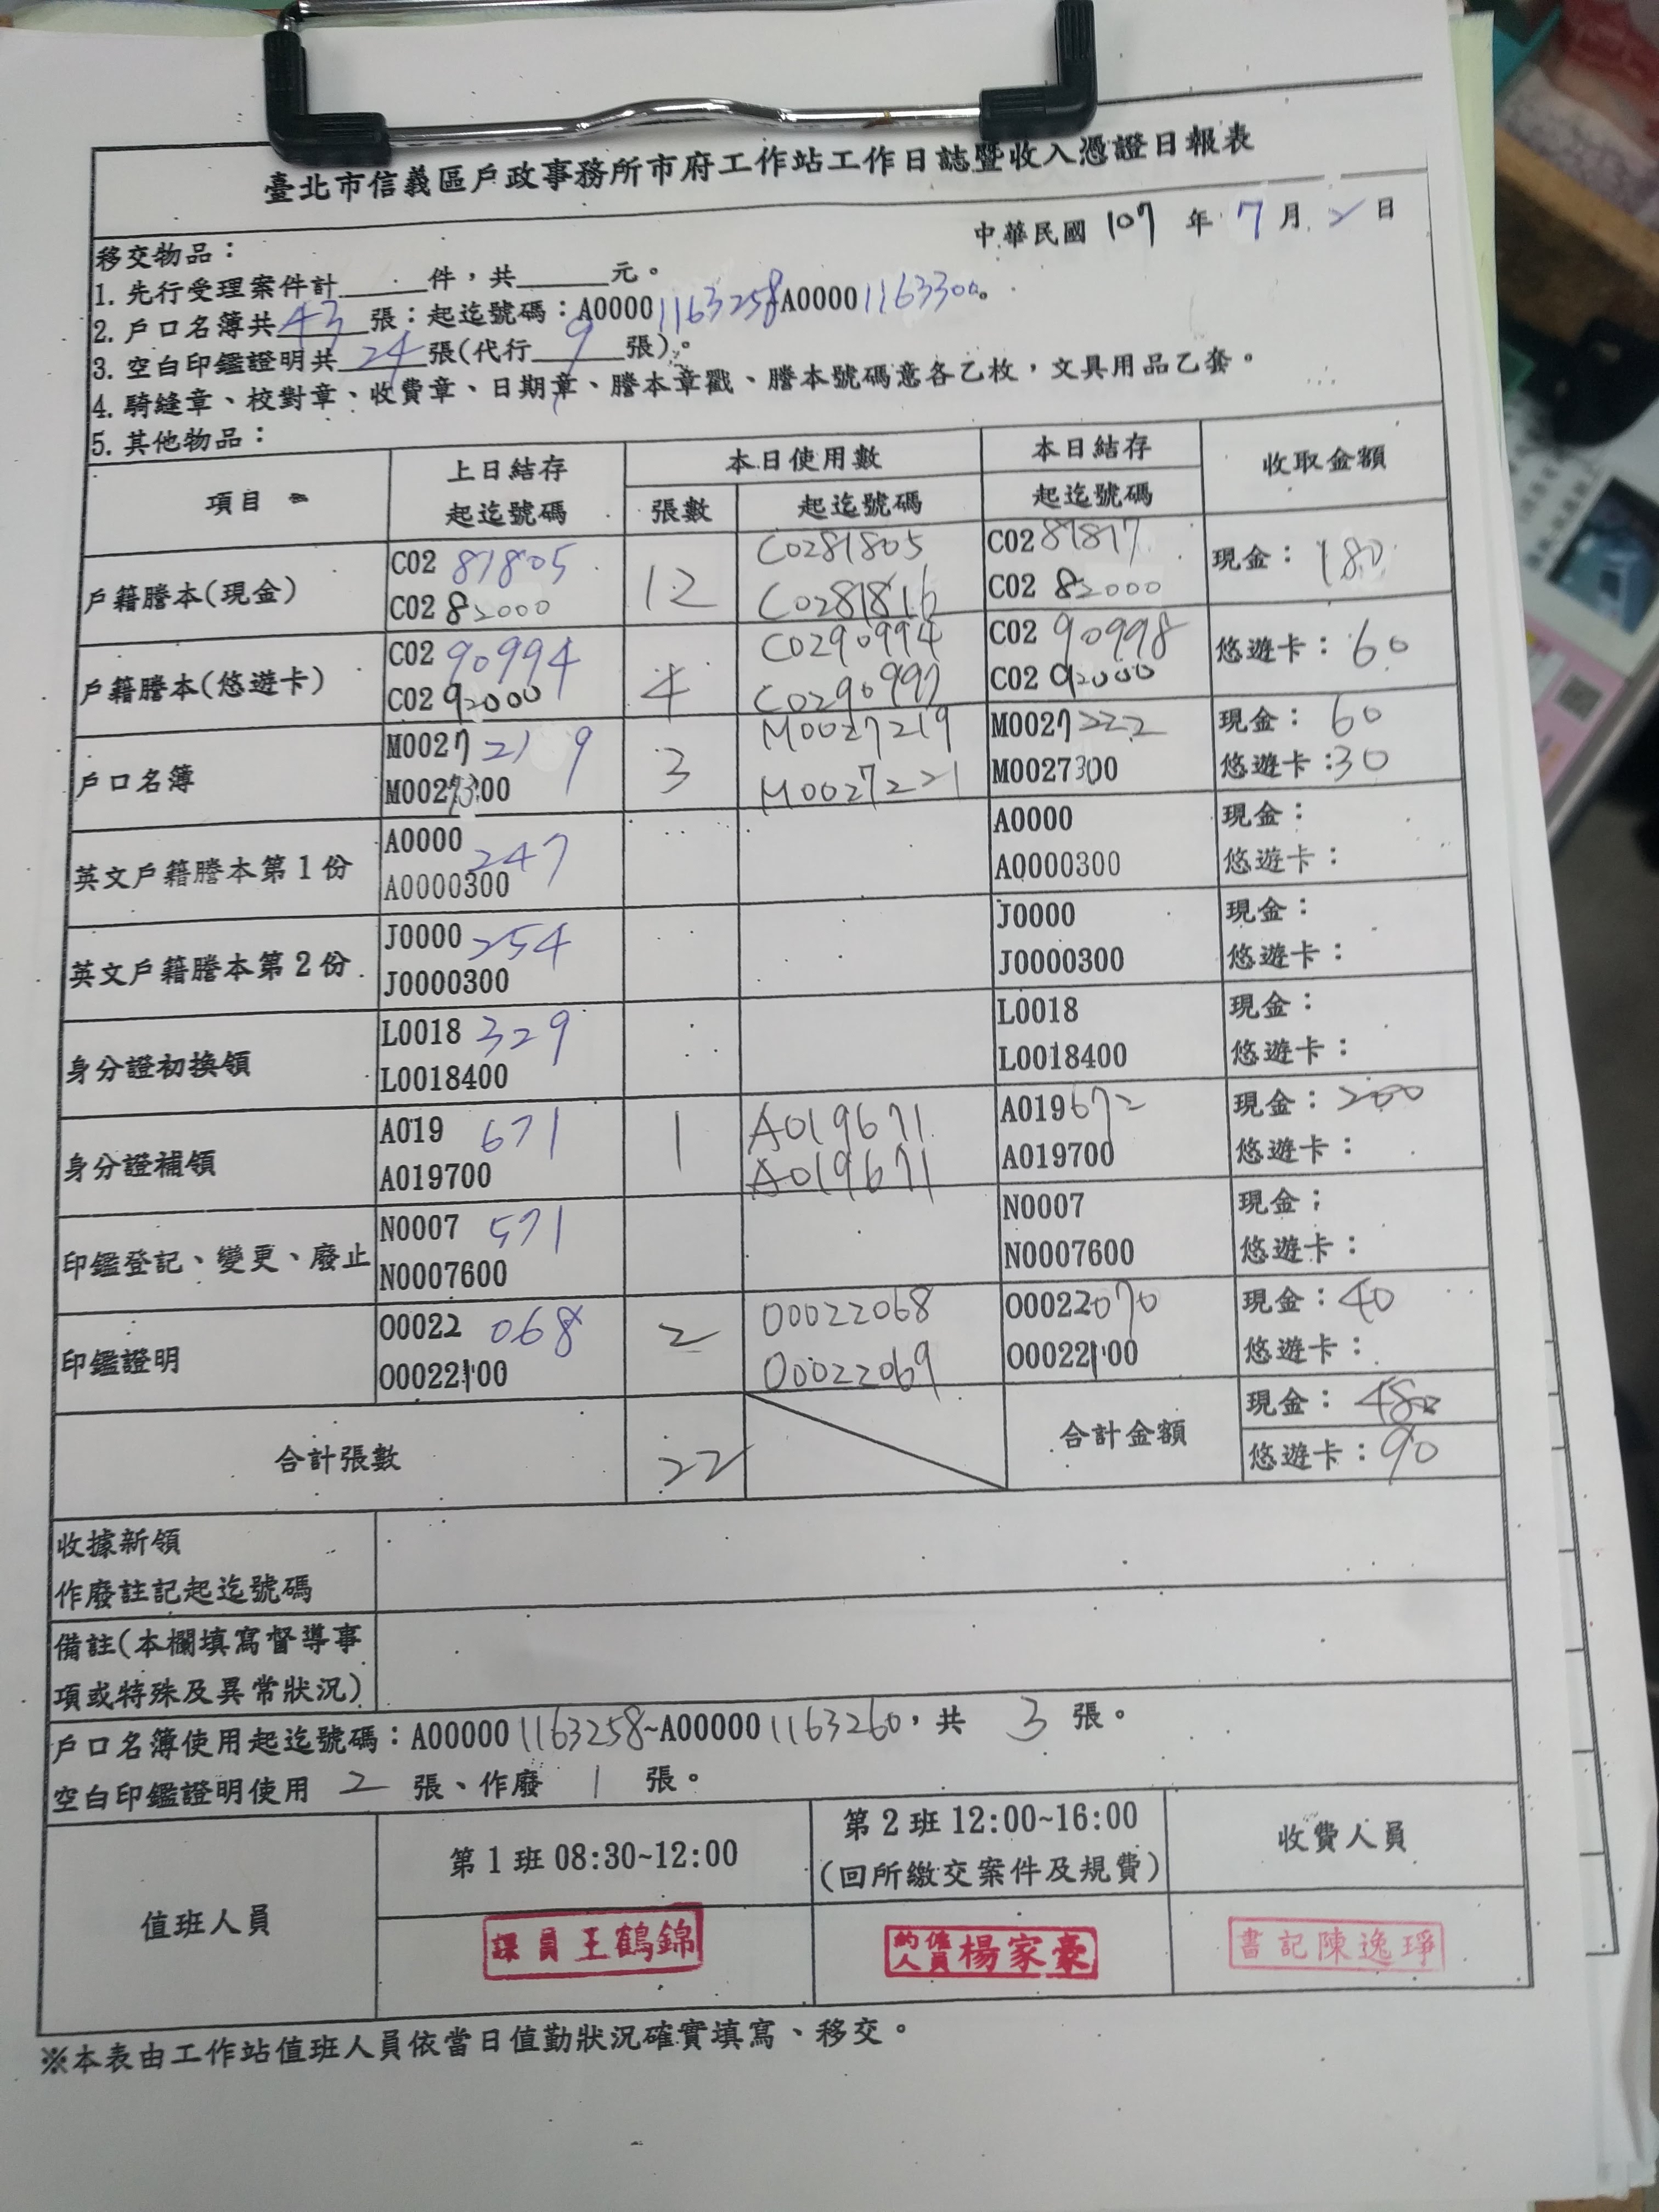 臺北市信義區戶政事務所市府工作站工作日誌暨收入憑證日報表
中華民國 107 年 7 月 2 日
移交物品：
1. 先行受理案件計______件，共______元。
2. 戶口名簿共 43 張：起迄號碼：A00001163258-A00001163300。
3. 空白印鑑證明共 24 張(代行 9 張)。
4. 騎縫章、校對章、收費章、日期章、謄本章戳、謄本號碼意各乙枚，文具用品乙套。
5. 其他物品：
項目 上日結存 起迄號碼 本日使用數 張數 起迄號碼 本日結存 起迄號碼 收取金額
戶籍謄本(現金) C02 81805 12 C0281805 C02 81817 現金： 180
C02 82000 C0281816 C02 82000
戶籍謄本(悠遊卡) C02 90994 4 C0290994 C02 90998 悠遊卡： 60
C02 92000 C0290997 C02 92000
戶口名簿 M0027 219 3 M0027219 M0027222 現金： 60
M0027300 M0027221 M0027300 悠遊卡：30
英文戶籍謄本第 1 份 A0000 247 A0000 現金：
A0000300 A0000300 悠遊卡：
英文戶籍謄本第 2 份 J0000 254 J0000 現金：
J0000300 J0000300 悠遊卡：
身分證初換領 L0018 329 L0018 現金：
L0018400 L0018400 悠遊卡：
身分證補領 A019 671 1 A019671 A019672 現金： 200
A019700 A019671 A019700 悠遊卡：
印鑑登記、變更、廢止 N0007 571 N0007 現金：
N0007600 N0007600 悠遊卡：
印鑑證明 O0022 068 2 O0022068 O0022070 現金： 40
O0022100 O0022069 O0022100 悠遊卡：
合計張數 22 合計金額 現金： 480
悠遊卡： 90
收據新領
作廢註記起迄號碼
備註(本欄填寫督導事
項或特殊及異常狀況)
戶口名簿使用起迄號碼：A000001163258~A000001163260，共 3 張。
空白印鑑證明使用 2 張、作廢 1 張。
值班人員 第 1 班 08:30~12:00 第 2 班 12:00~16:00 收費人員
(回所繳交案件及規費)
課員 王鶴錦 約僱人員 楊家豪 書記陳逸琤
※本表由工作站值班人員依當日值勤狀況確實填寫、移交。